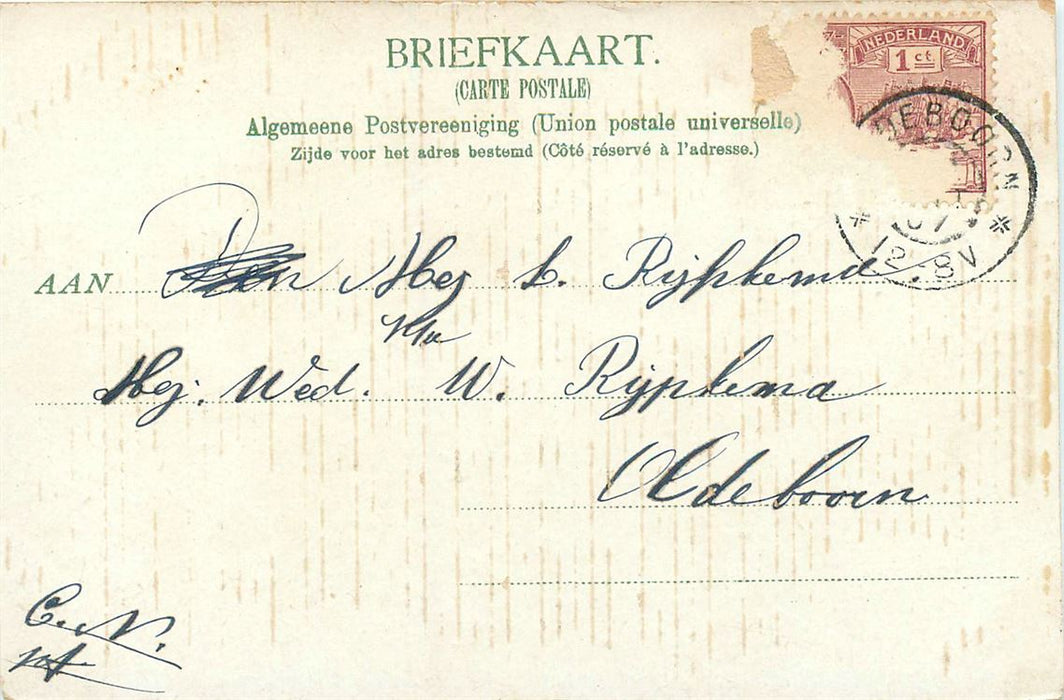 BRIEFKAART.
(CARTE POSTALE)
Algemeene Postvereeniging (Union postale universelle)
Zijde voor het adres bestemd (Côté réservé à l'adresse.)
NEDERLAND
1 ct
DEBOORN
07
12. 8V
AAN Mej L. Rijpkema
Mej. Wed. W. Rijpkema
Oldeboorn
C. N.